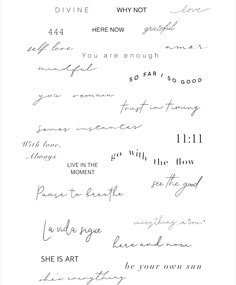 DIVINE
WHY NOT
love
444
HERE NOW
grateful
self love
amor
You are enough
mindful
SO FAR / SO GOOD
you remain
trust in timing
somos instantes
With love,
Always
go with the flow
11:11
LIVE IN THE
MOMENT
see the good
Pause to breathe
La vida sigue
everything, in time
here and now
SHE IS ART
be your own sun
she's everything